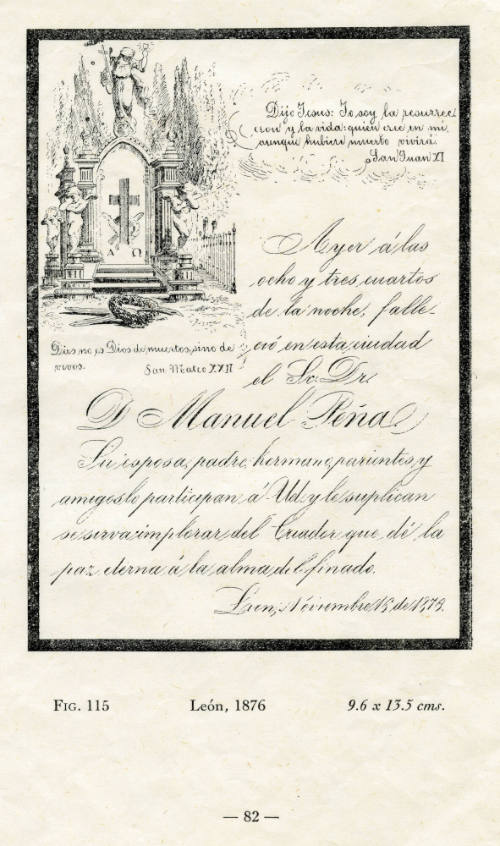 Dijo Jesus: Yo soy la resurrec
cion y la vida: quien cree en mi,
aunque hubiere muerto vivirá.
San Juan XI
Α Ω
Dios no es Dios de muertos, sino de
vivos.
San Mateo XXII
Ayer á las
ocho y tres cuartos
de la noche, falle-
ció en esta ciudad
el Sr. Dr.
D. Manuel Peña
Su esposa, padre, hermano, parientes, y
amigos lo participan á Ud. y le suplican
se sirva implorar del Criador que dé la
paz eterna á la alma del finado.
Leon, Noviembre de
FIG. 115
León, 1876
9.6 x 13.5 cms.
— 82 —